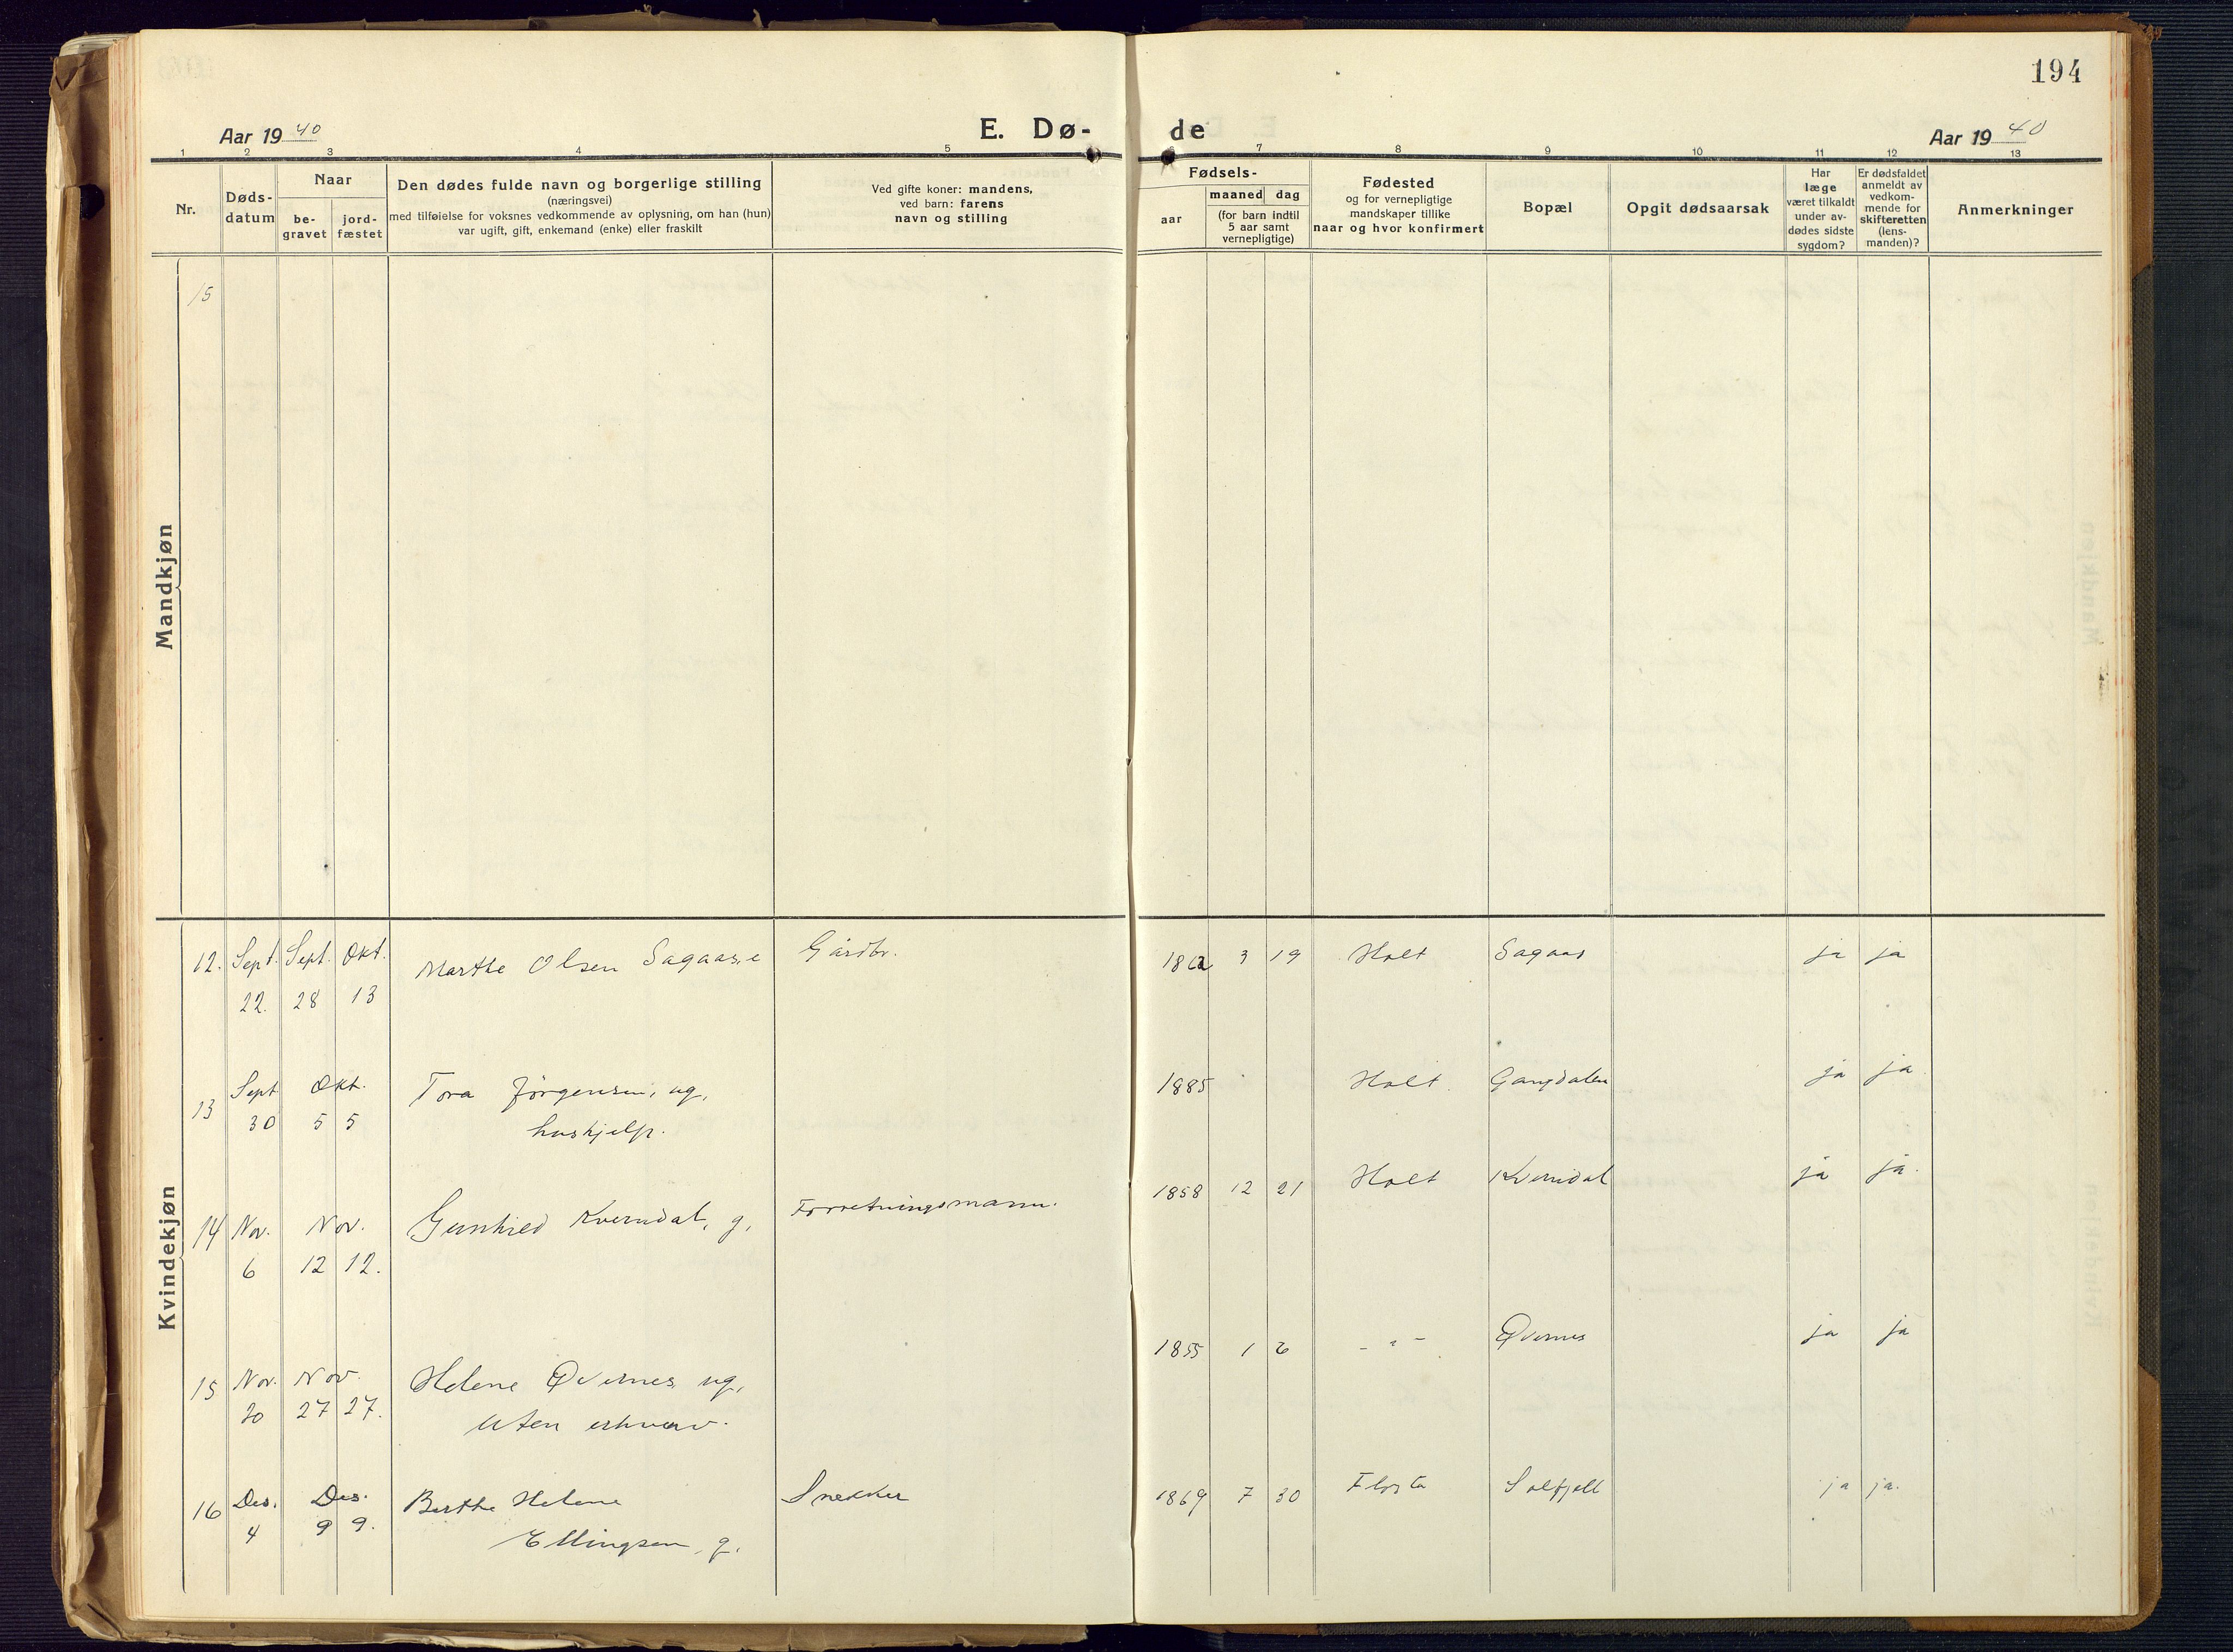 194
Aar 19 40
E. Dø-
de
Aar 19 40
1 2 3 4 5 7 8 9 10 11 12 13
Nr.
Døds-
datum
Naar
be-
gravet
jord-
fæstet
Den dødes fulde navn og borgerlige stilling
(næringsvei)
med tilføielse for voksnes vedkommende av oplysning, om han (hun)
var ugift, gift, enkemand (enke) eller fraskilt
Ved gifte koner: mandens,
ved barn: farens
navn og stilling
Fødsels-
aar
maaned dag
(for barn indtil
5 aar samt
vernepligtige)
Fødested
og for vernepligtige
mandskaper tillike
naar og hvor konfirmert
Bopæl
Opgit dødsaarsak
Har
læge
været tilkaldt
under av-
dødes sidste
sygdom?
Er dødsfaldet
anmeldt av
vedkom-
mende for
skifteretten
(lens-
manden)?
Anmerkninger
Mandkjøn
15
Kvindekjøn
12. Sept. Sept. Okt. Marthe Olsen Sagaas, e Gårdbr. 1862 3 19 Holt Sagaas ja ja
22. 28 13
13 Sept Okt. Tora Jörgensen, ug, 1885 Holt Gangdalen ja ja
30 5 5 hushjelp.
14 Nov. Nov. Gunhild Kverndal, g, Forretningsmann. 1858 12 21 Holt Kverndal ja ja.
6 12 12.
15 Nov. Nov. Helene Øvernes ug, 1855 1 6 - " - Øvernes ja ja
20 27 27. Uten erhverv.
16 Des. Des. Berthe Helene Snekker 1869 7 30 Flosta Solfjell ja ja.
4 9 9. Ellingsen, g.